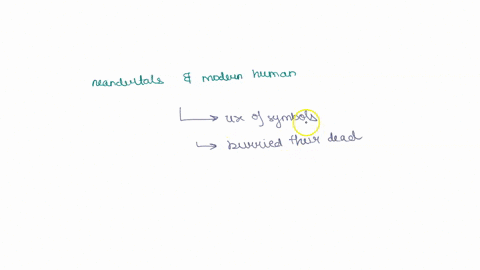 neandertals & modern human
use of symbols
burried their dead